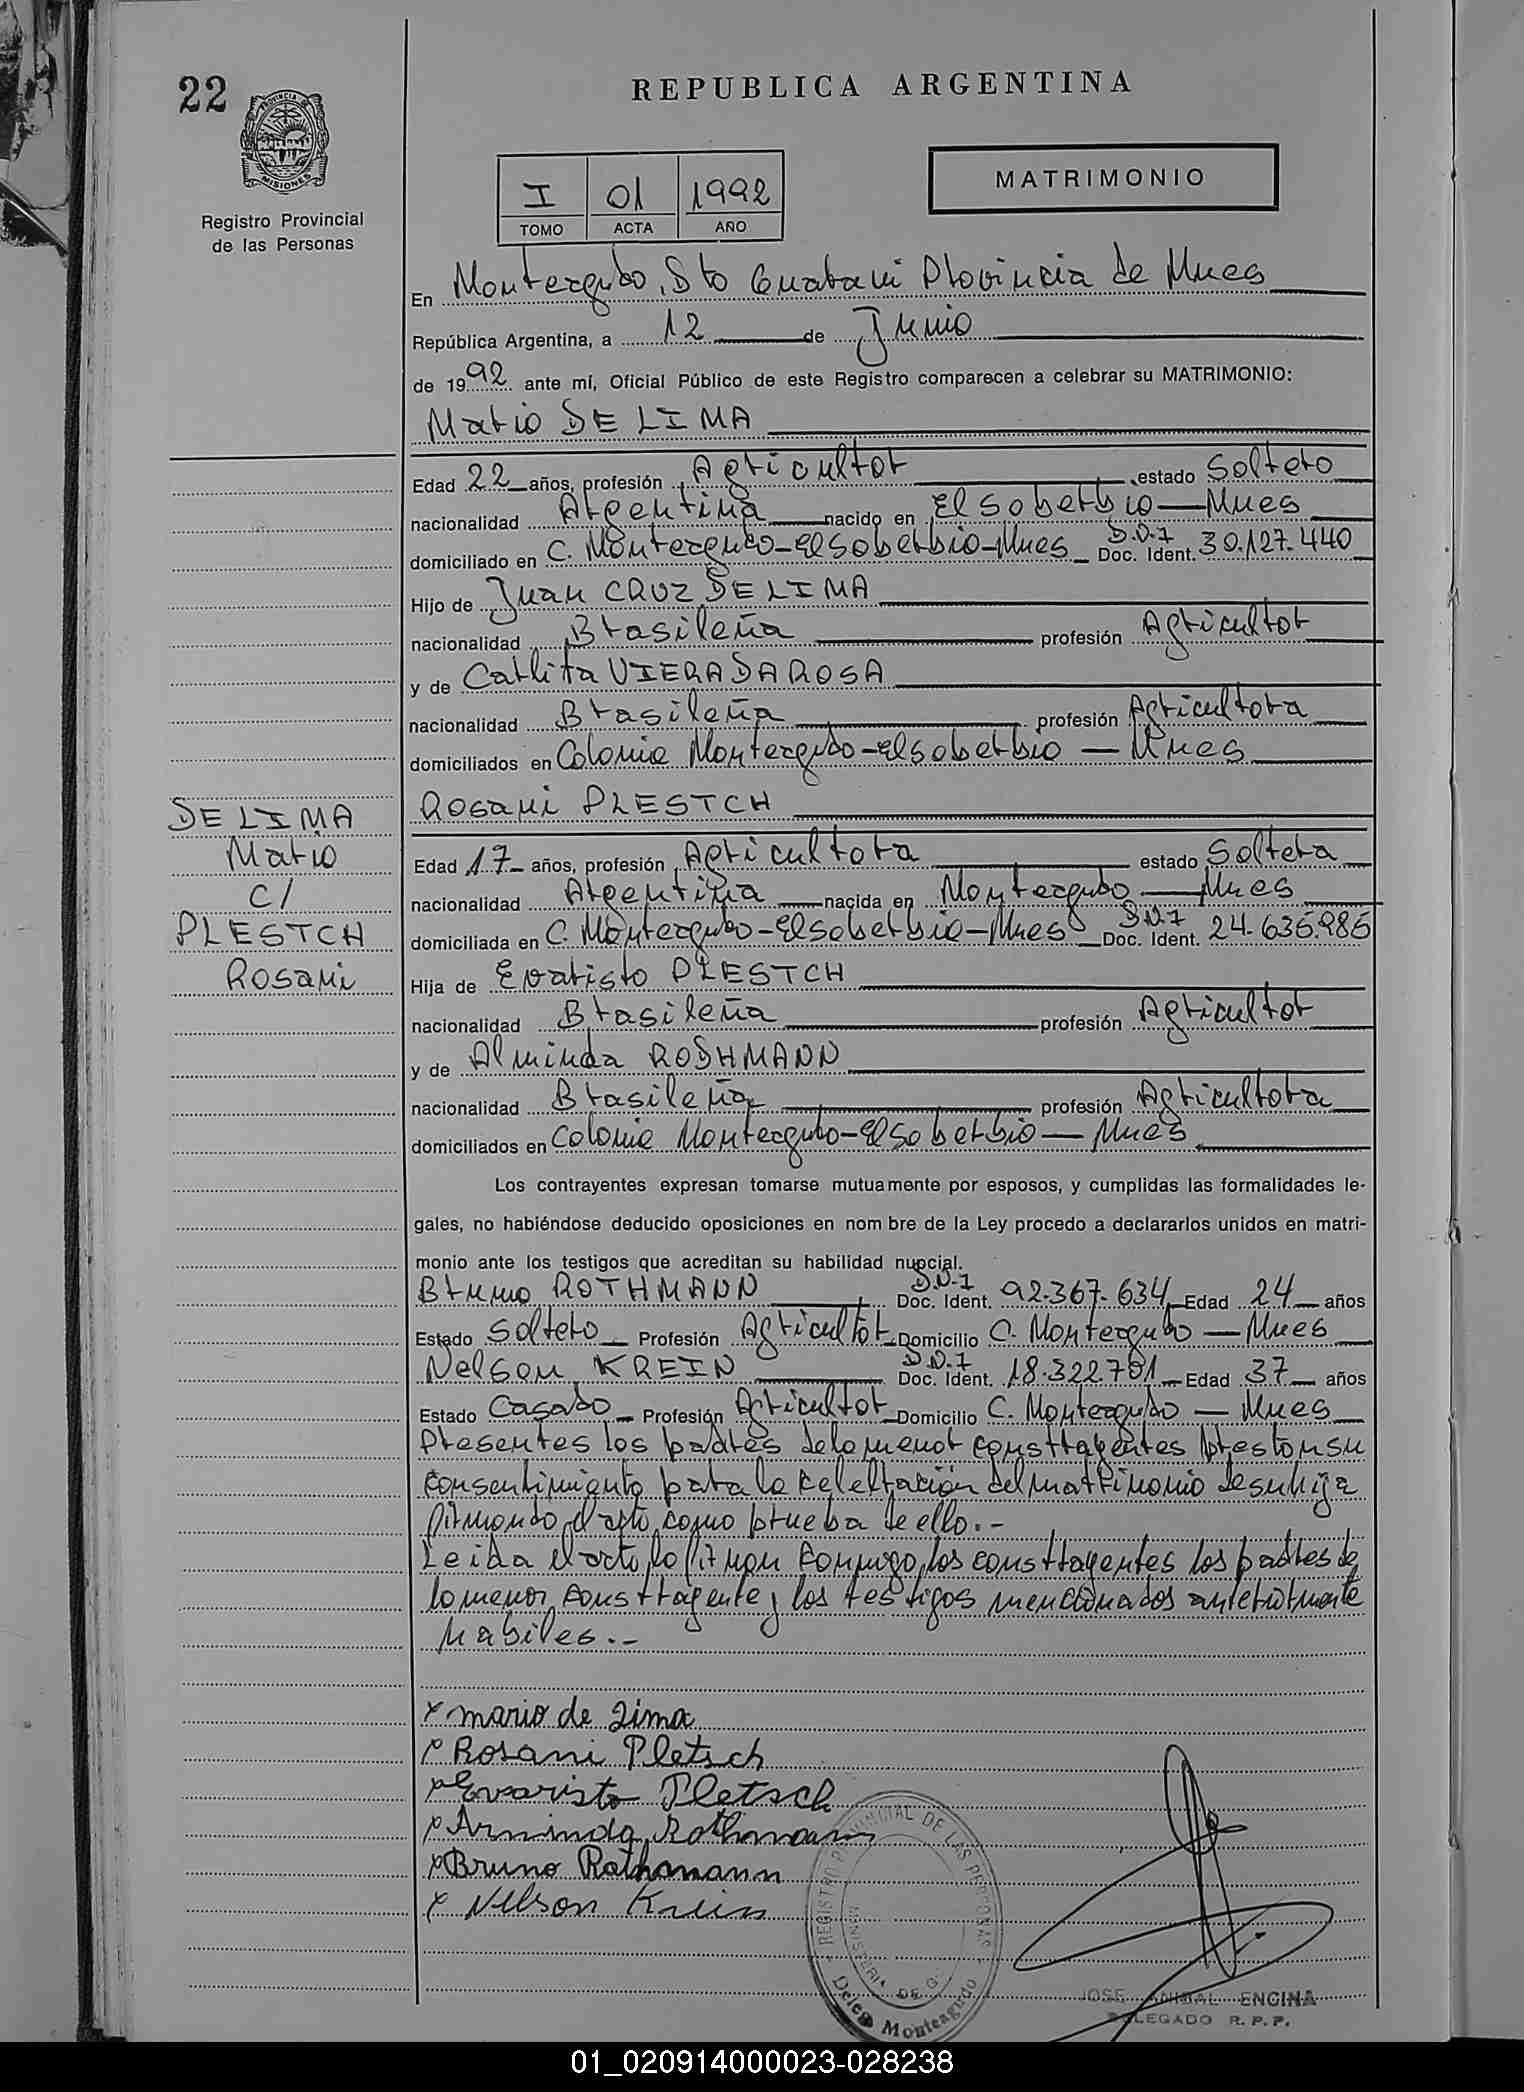 22
PROVINCIA DE
MISIONES
Registro Provincial
de las Personas
REPUBLICA ARGENTINA
I 01 1992
TOMO ACTA AÑO
MATRIMONIO
En Monteagudo, Dto Guarani Provincia de Mnes
República Argentina, a 12 de Junio
de 1992 ante mí, Oficial Público de este Registro comparecen a celebrar su MATRIMONIO:
Mario DE LIMA
Edad 22 años, profesión Agricultor estado Soltero
nacionalidad Argentina nacido en El Soberbio - Mnes
domiciliado en C. Monteagudo - El Soberbio - Mnes D.N.I Doc. Ident. 30.127.440
Hijo de Juan CRUZ DE LIMA
nacionalidad Brasileña profesión Agricultor
y de Carlita VIERA DA ROSA
nacionalidad Brasileña profesión Agricultora
domiciliados en Colonia Monteagudo - El soberbio - Mnes
Rosani PLESTCH
Edad 17 años, profesión Agricultora estado Soltera
nacionalidad Argentina nacida en Monteagudo - Mnes
domiciliada en C. Monteagudo - El Soberbio - Mnes D.N.I Doc. Ident. 24.635.985
Hija de Evaristo PLESTCH
nacionalidad Brasileña profesión Agricultor
y de Alminda ROSHMANN
nacionalidad Brasileña profesión Agricultora
domiciliados en Colonia Monteagudo - El Soberbio - Mnes
DE LIMA
Mario
C/
PLESTCH
Rosani
Los contrayentes expresan tomarse mutuamente por esposos, y cumplidas las formalidades le-
gales, no habiéndose deducido oposiciones en nom bre de la Ley procedo a declararlos unidos en matri-
monio ante los testigos que acreditan su habilidad nupcial.
Bruno ROTHMANN D.N.I Doc. Ident. 92.367.634 Edad 24 años
Estado Soltero Profesión Agricultor Domicilio C. Monteagudo - Mnes
Nelson KREIN D.N.I Doc. Ident. 18.322.781 Edad 37 años
Estado Casado Profesión Agricultor Domicilio C. Monteagudo - Mnes
Presentes los padres de la menor consttayentes prestan su
consentimiento para la celebración del matrimonio de su hija
firmando el acto como prueba de ello.-
Leida el acto, lo firman conmigo, los consttayentes los padres de
la menor consttayente y los testigos mencionados anteriormente
habiles.-
x mario de Lima
x Rosani Pletsch
x Evaristo Pletsch
x Arminda Rothmann
x Bruno Rothmann
x Nelson Krein
REGISTRO PROVINCIAL DE LAS PERSONAS
MINISTERIO DE G.
Deleg Monteagudo
JOSE ANIBAL ENCINA
DELEGADO R. P. P.
01_020914000023-028238